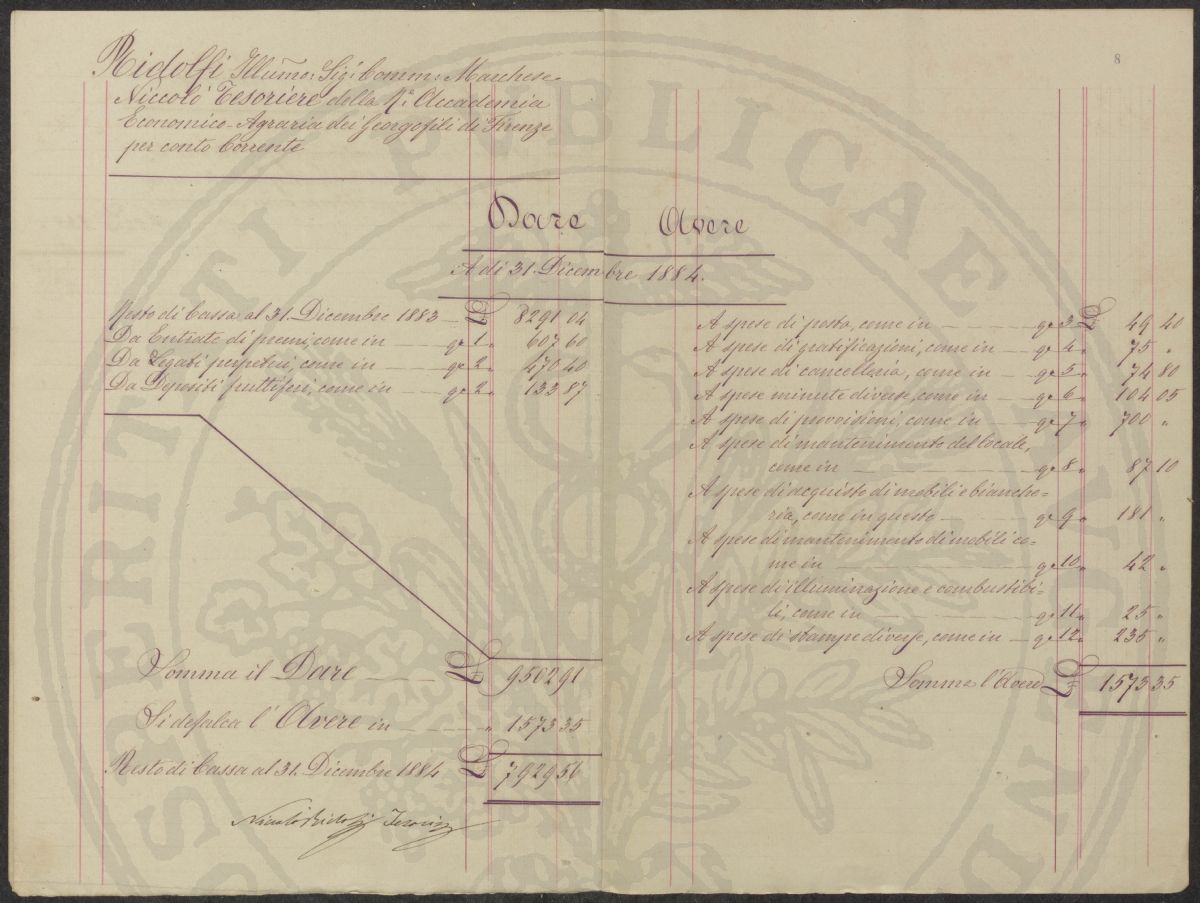 8
PVBLICAE
Ridolfi Illumo: Sigr Comm: Marchese
Niccolò Tesoriere della Ra. Accademia
Economico-Agraria dei Georgofili di Firenze
per conto Corrente
Dare Avere
A dì 31. Dicembre 1884.
Resto di Cassa al 31. Dicembre 1883 — £ 8291 04
Da Entrate di premi, come in — qo 1 " 607 60
Da Legati perpetui, come in — qo 2 " 470 40
Da Depositi fruttiferi, come in — qo 2 " 133 87
Somma il Dare — £ 9502 91
Si defalca l'Avere in — " 1573 35
Resto di Cassa al 31. Dicembre 1884 £ 7929 56
Niccolò Ridolfi Tesoriere
A spese di posta, come in — qo 3 £ 49 40
A spese di gratificazioni, come in — qo 4 " 75 "
A spese di cancelleria, come in — qo 5 " 74 80
A spese minute diverse, come in — qo 6 " 104 05
A spese di provvisioni, come in — qo 7 " 700 "
A spese di mantenimento del locale,
come in — qo 8 " 87 10
A spese di acquisto di mobili e bianche=
ria, come in questo — qo 9 " 181 "
A spese di mantenimento di mobili co=
me in — qo 10 " 42 "
A spese di illuminazione e combustibi=
li, come in — qo 11 " 25 "
A spese di stampe diverse, come in — qo 12 " 235 "
Somma l'Avere £ 1573 35